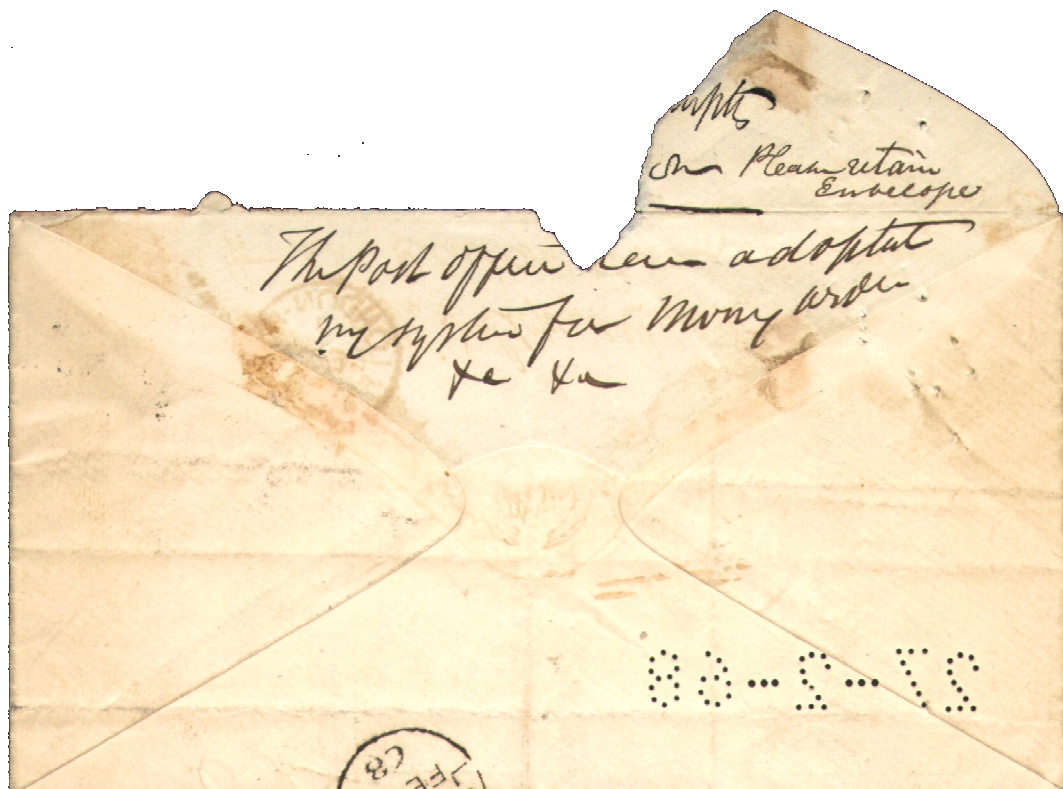 Please retain
Envelope
The Post office have adopted
my system for Money orders
&c &c
27-2-68
FE